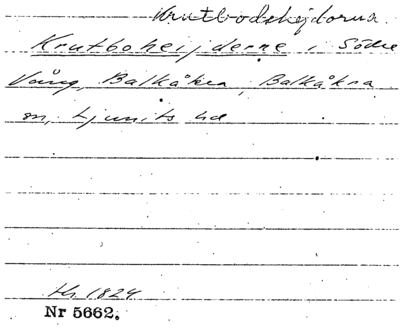 Krutbodshejdorna.
Krutboheijderne i Södre
Vång, Balkåkra, Balkåkra
sn, Ljunits hd
Hr 1824
Nr 5662.